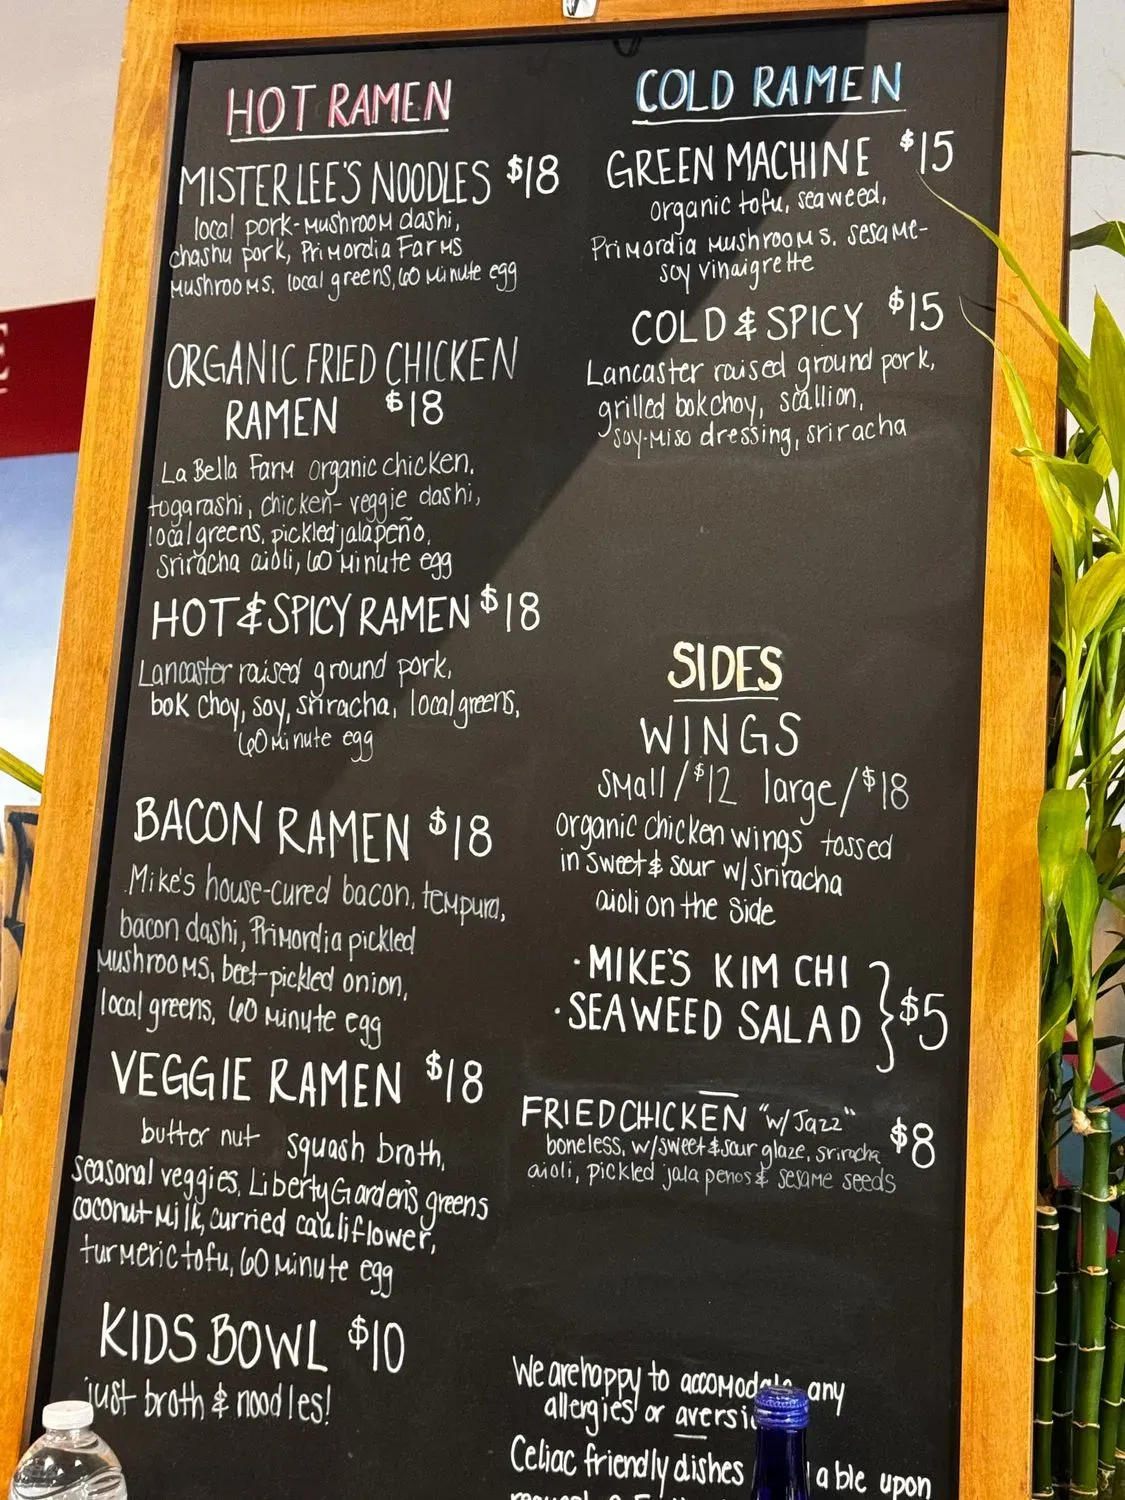 HOT RAMEN
MISTER LEE'S NOODLES $18
local pork-mushroom dashi,
chashu pork, Primordia Farms
mushrooms, local greens, 60 minute egg
ORGANIC FRIED CHICKEN
RAMEN $18
La Bella Farm organic chicken,
togarashi, chicken-veggie dashi,
local greens, pickled jalapeño,
sriracha aioli, 60 minute egg
HOT & SPICY RAMEN $18
Lancaster raised ground pork,
bok choy, soy, sriracha, local greens,
60 minute egg
BACON RAMEN $18
Mike's house-cured bacon, tempura,
bacon dashi, Primordia pickled
mushrooms, beet-pickled onion,
local greens, 60 minute egg
VEGGIE RAMEN $18
butter nut squash broth,
seasonal veggies, Liberty Garden's greens
coconut milk, curried cauliflower,
turmeric tofu, 60 minute egg
KIDS BOWL $10
just broth & noodles!
COLD RAMEN
GREEN MACHINE $15
organic tofu, seaweed,
Primordia mushrooms, sesame-
soy vinaigrette
COLD & SPICY $15
Lancaster raised ground pork,
grilled bokchoy, scallion,
soy-miso dressing, sriracha
SIDES
WINGS
small/$12 large/$18
organic chicken wings tossed
in sweet & sour w/sriracha
aioli on the side
· MIKE'S KIM CHI
· SEAWEED SALAD } $5
FRIED CHICKEN "w/Jazz" $8
boneless, w/sweet & sour glaze, sriracha
aioli, pickled jalapenos & sesame seeds
We are happy to accomodate any
allergies or aversi
Celiac friendly dishes able upon
E